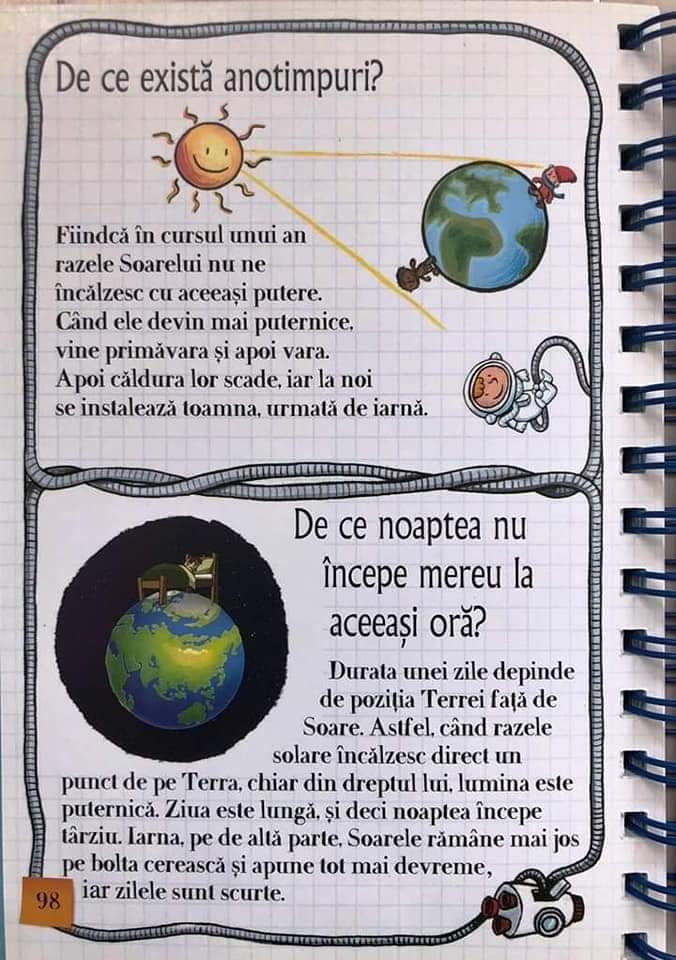 De ce există anotimpuri?
Fiindcă în cursul unui an
razele Soarelui nu ne
încălzesc cu aceeași putere.
Când ele devin mai puternice,
vine primăvara și apoi vara.
Apoi căldura lor scade, iar la noi
se instalează toamna, urmată de iarnă.
De ce noaptea nu
începe mereu la
aceeași oră?
Durata unei zile depinde
de poziția Terrei față de
Soare. Astfel, când razele
solare încălzesc direct un
punct de pe Terra, chiar din dreptul lui, lumina este
puternică. Ziua este lungă, și deci noaptea începe
târziu. Iarna, pe de altă parte, Soarele rămâne mai jos
pe bolta cerească și apune tot mai devreme,
iar zilele sunt scurte.
98